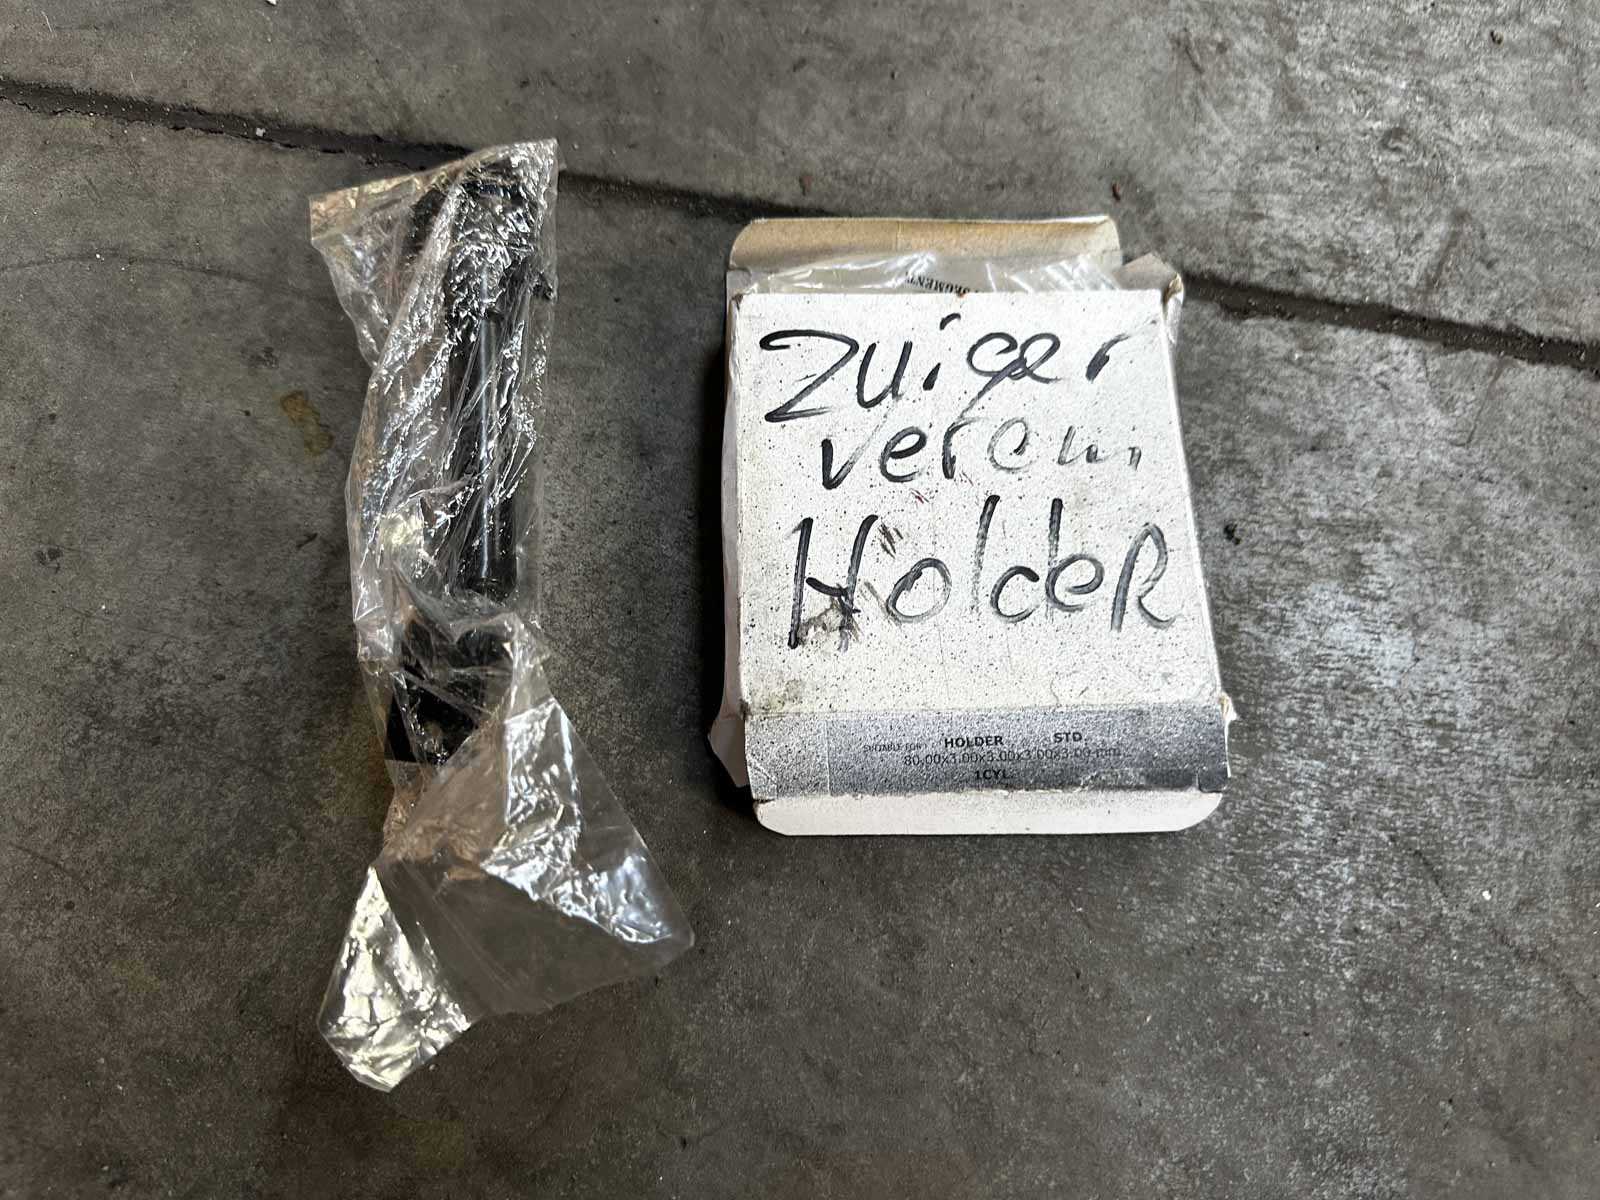 SEGMENT
Zuiger
veren
Holder
SUITABLE FOR HOLDER STD
80.00x3.00x3.00x3.00x3.00 mm
1CYL.